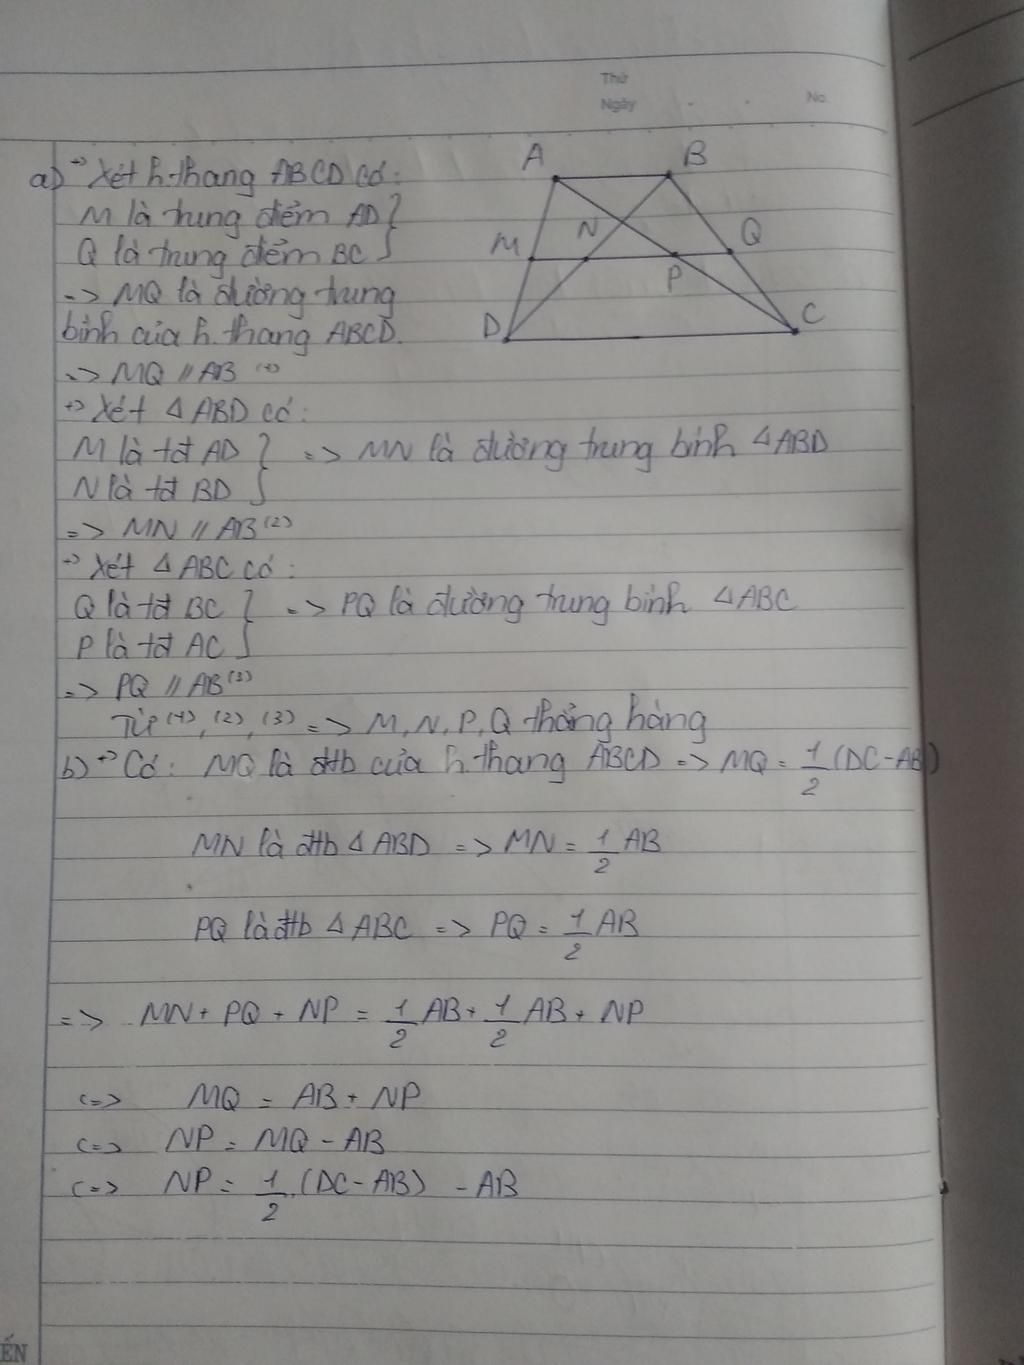 Thứ
Ngày
No.
a) +) Xét h.thang ABCD có:
M là trung điểm AD }
Q là trung điểm BC
=> MQ là đường trung
bình của h.thang ABCD.
=> MQ // AB (1)
+) Xét Δ ABD có:
M là tđ AD } => MN là đường trung bình Δ ABD
N là tđ BD
=> MN // AB (2)
+) Xét Δ ABC có:
Q là tđ BC } => PQ là đường trung bình Δ ABC
P là tđ AC
=> PQ // AB (3)
Từ (1), (2), (3) => M, N, P, Q thẳng hàng
b) +) Có: MQ là đtb của h.thang ABCD => MQ = 1/2 (DC - AB)
MN là đtb Δ ABD => MN = 1/2 AB
PQ là đtb Δ ABC => PQ = 1/2 AB
=> MN + PQ + NP = 1/2 AB + 1/2 AB + NP
<=> MQ = AB + NP
<=> NP = MQ - AB
<=> NP = 1/2 (DC - AB) - AB
A
B
M
N
Q
P
D
C
ẾN